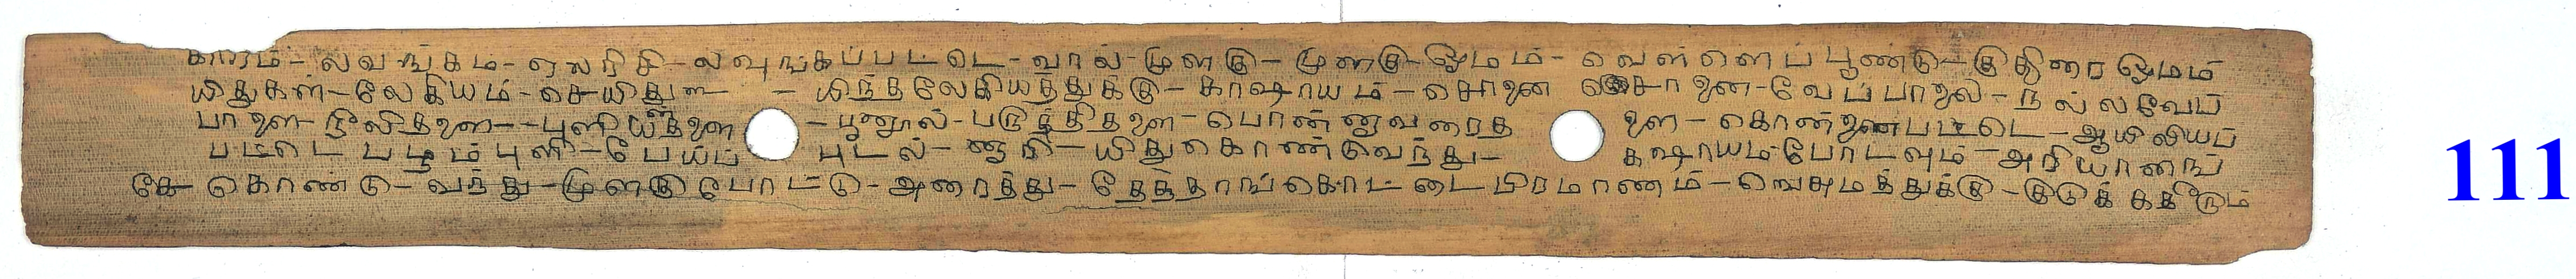 காரம் - லவங்கம - ஏலரிசி - லவுங்கப்பட்டெ - வால் - முளகு - முளகு - ஓமம் - வெள்ளெப் பூண்டு - குதிரை ஓமம்
யிதுகள் - லேகியம் - செயிதுள - யிந்தலேகியத்துக்கு - காஷாயம் - வேப்பாலை - நல்லவேப்
பாளை - நீலித - பூனூல் - பருத்திதளை - பொன்னுவரைத ளை - பட்டெ - ஆயிலியப்
பட்டெ பழம்புளி - பேய்ப் புடல் - யிதுகொண்டுவந்து - கஷாயம் போடவும் - அரியானைங்
கே கொண்டு - வந்து - முளகு போட்டு - அரைத்து - தேத்தாங்கொட்டடை பிரமாணம் -
111